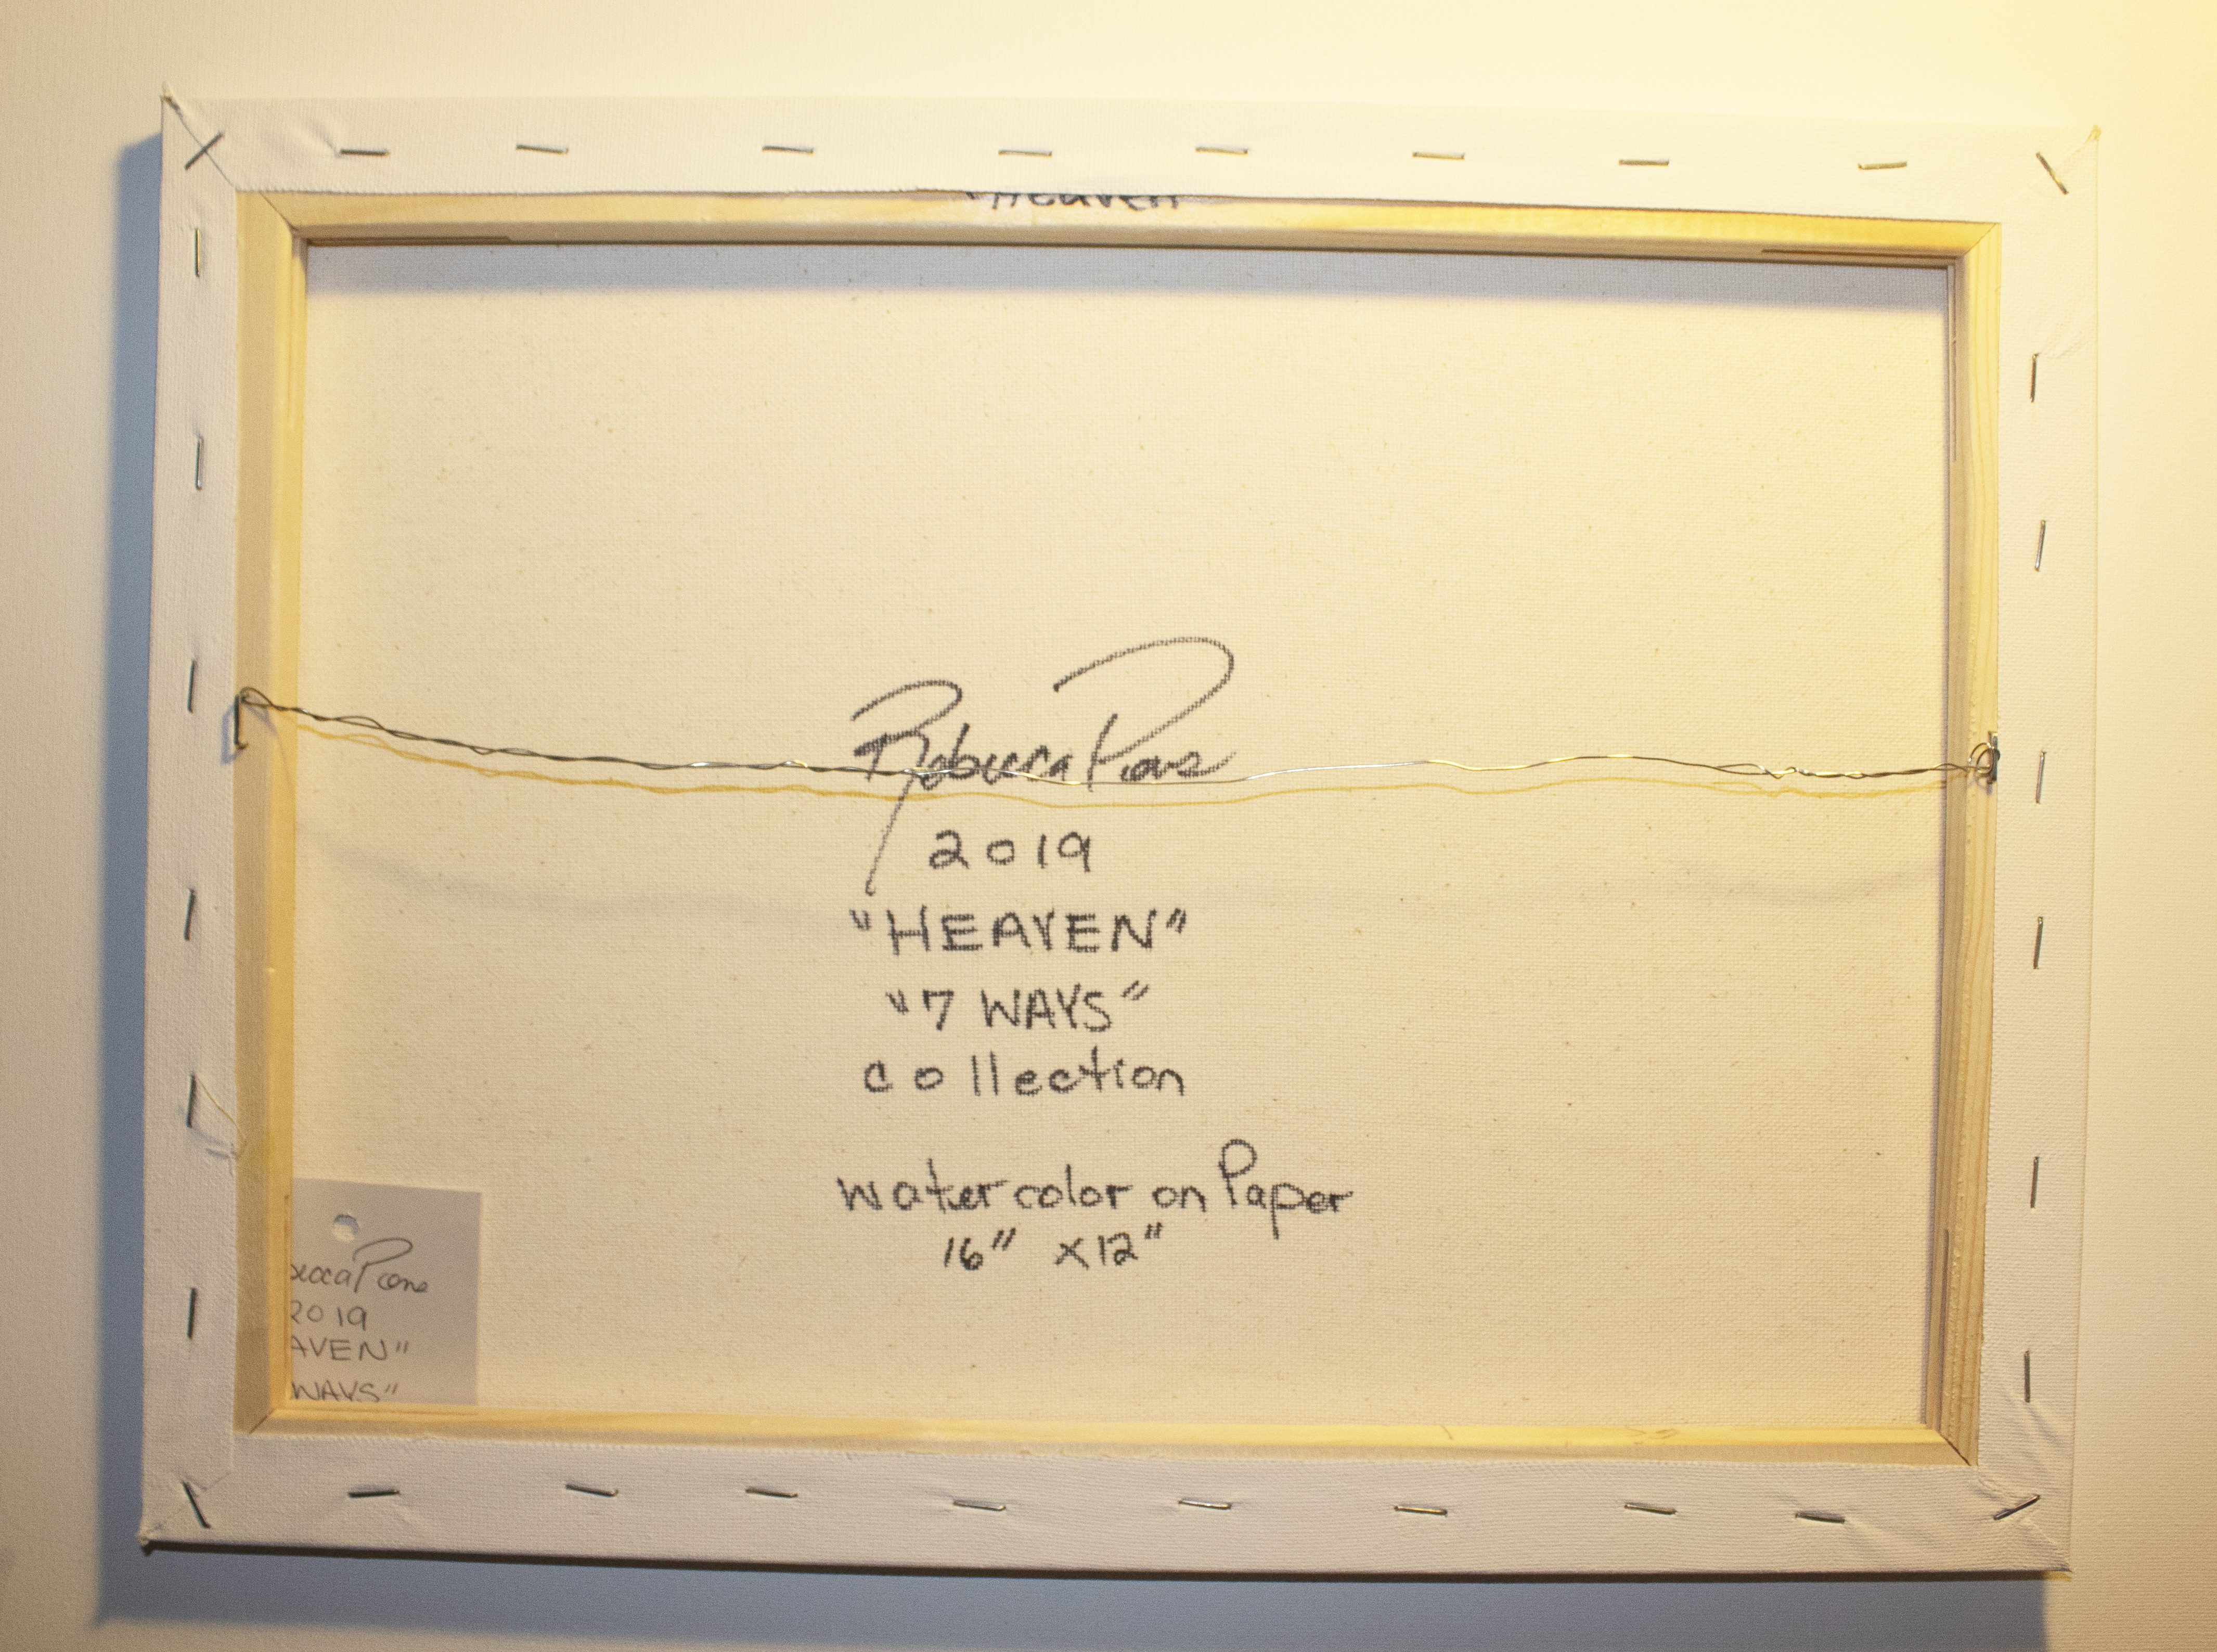 "Heaven
Rebecca
2019
"HEAVEN"
"7 WAYS"
collection
watercolor on Paper
16" x12"
becca
2019
AVEN"
WAYS"